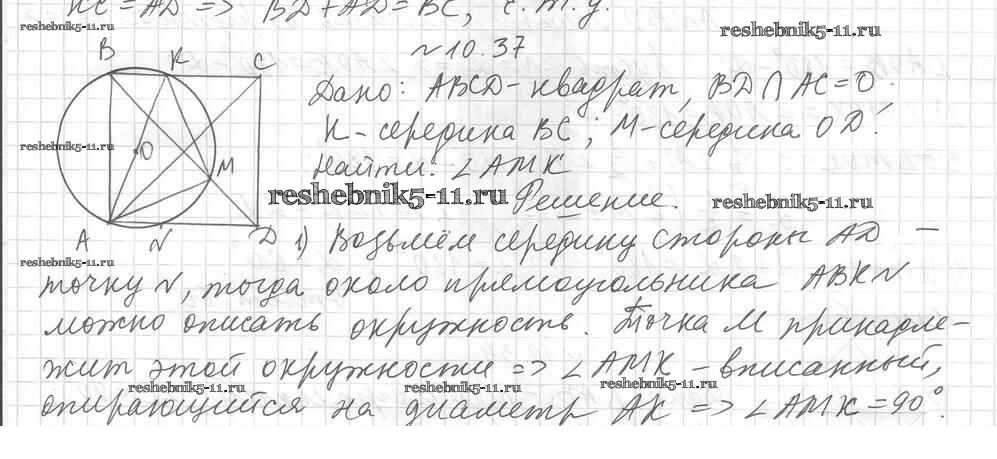 КС = AD => BD + AD = BC, ч.т.д.
reshebnik5-11.ru
reshebnik5-11.ru
№10.37
B K C
Дано: ABCD - квадрат, BD ∩ AC = O.
K - середина BC; M - середина OD.
reshebnik5-11.ru
O
M
Найти: ∠AMK
reshebnik5-11.ru
reshebnik5-11.ru
Решение.
A N D
1) Возьмём середину стороны AD –
reshebnik5-11.ru
точку N, тогда около прямоугольника ABKN
можно описать окружность. Точка M принадле-
жит этой окружности => ∠AMK - вписанный,
reshebnik5-11.ru
reshebnik5-11.ru
reshebnik5-11.ru
опирающийся на диаметр AK => ∠AMK = 90°.